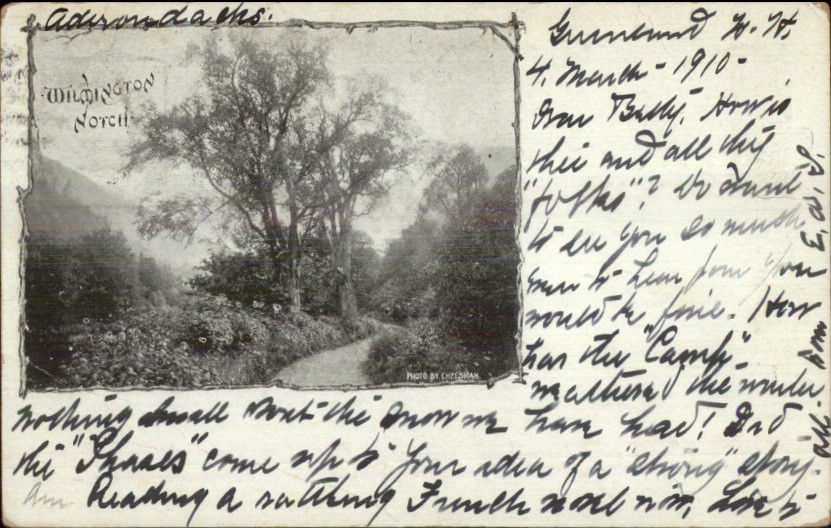 Adirondacks.
WILMINGTON
NOTCH
PHOTO BY CHEESMAN
4. March - 1910 -
Dear Betty. How is
thee and all thy
"folks"? Do want
to see you so much
even to hear from you
would be fine. How
has the "Camp"
the winter
nothing small about the snow we have had! Did
the come up to your idea of a "strong" story.
Am Reading a rattling French novel now, Love to
all. from E. W. S.